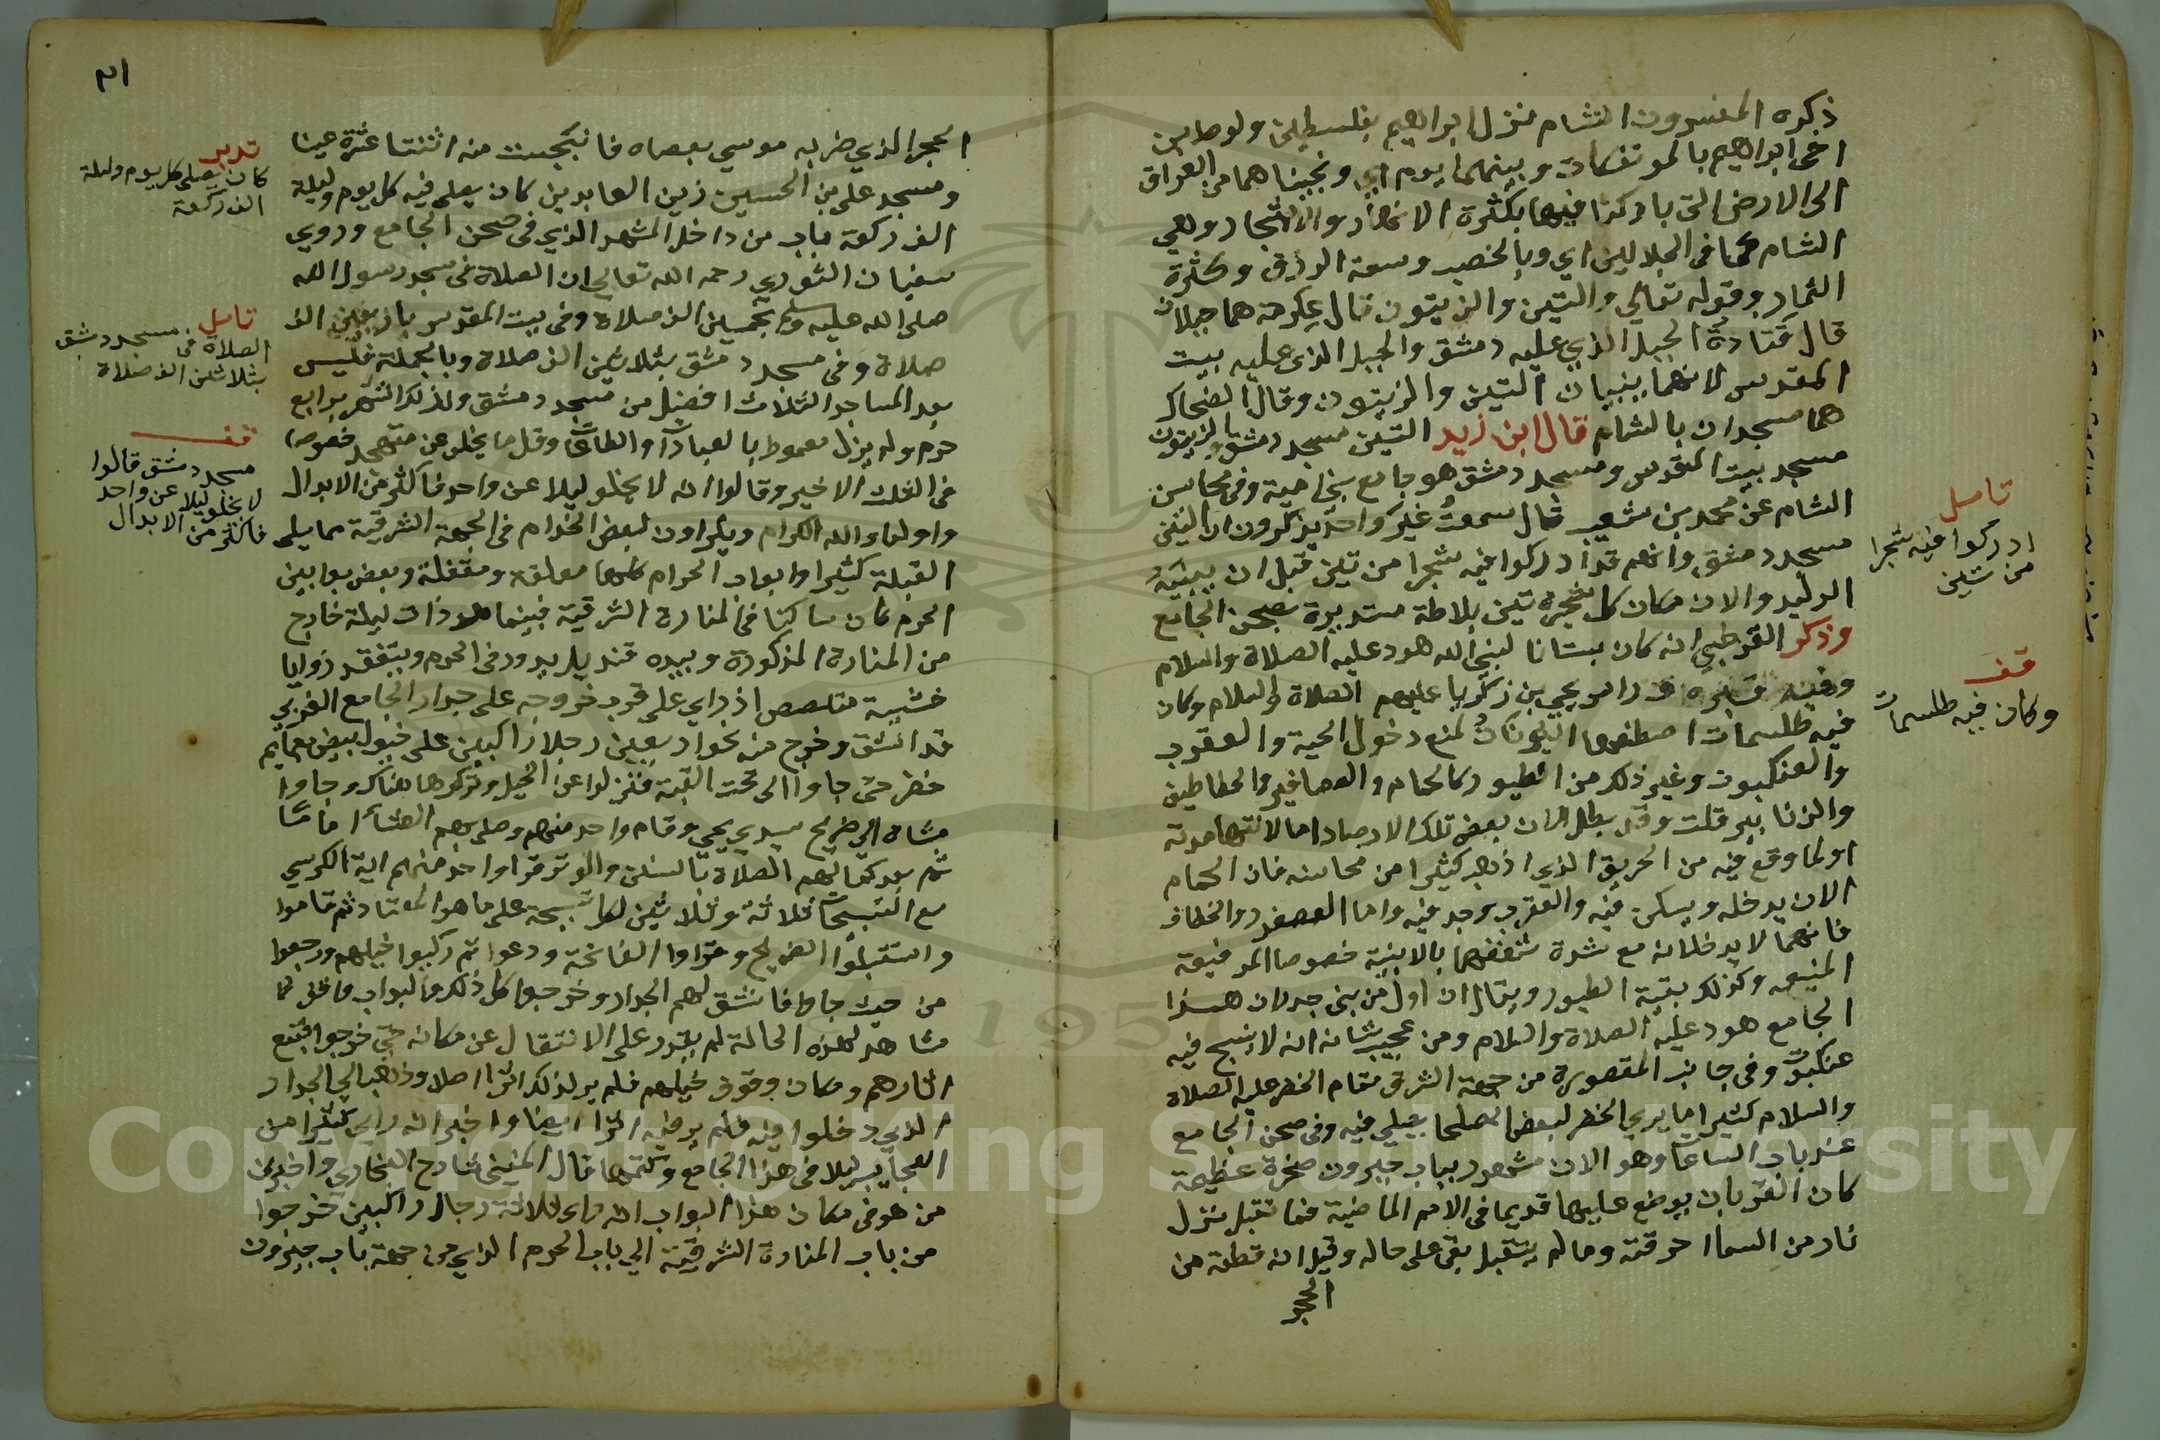 ذكره المفسرون الشام نزل ابراهيم بفلسطين ولوط ابن
اخي ابراهيم بالموتفكات وبينهما يوم اي ونجيناهما من العراق
الى الارض التي باركنا فيها بكثرة الانهار والاشجار وهي
الشام كما في الجلالين اي وبالخصب وسعة الرزق وكثرة
الثمار وقوله تعالي والتين والزيتون قال عكرمة هما جبلان
قال قتادة الجبل الذي عليه دمشق والجبل الذي عليه بيت
المقدس لانهما ينبتان التين والزيتون وقال الضحاك
هما مسجدان بالشام قال ابن زيد التين مسجد دمشق والزيتون
مسجد بيت المقدس ومسجد دمشق هو جامع بني امية وفي محاسن
الشام عن محمد بن شعيب قال سمعت غير واحد يذكرون ان التين
مسجد دمشق وانهم قد ادركوا فيه شجرا من تين قبل ان يبنيه
الوليد والان مكان كل شجرة تين بلاطة مستديرة بصحن الجامع
وذكر القرطبي انه كان بستانا لنبي الله هود عليه الصلاة والسلام
وفيه قبره وراس يحيي بن زكريا عليهم الصلاة والسلام وكان
فيه طلسمات اصطنعها اليونان لمنع دخول الحية والعقرب
والعنكبوت وغير ذلك من الطيور كالحمام والعصافير والخطاطيف
والزنابير قلت وقد بطل الان بعض تلك الارصاد اما لانتهاء مدته
او لما وقع فيه من الحريق الذي اذهب كثيرا من محاسنه فان الحمام
الان يدخله ويسكن فيه والعقرب وجد فيه واما العصفور والخطاف
فانهما لا يدخلانه مع شدة شغفهما بالابنية خصوصا المرفيعة
المنيعه وكذلك بقية الطيور ويقال ان اول من بني جدران هذا
الجامع هود عليه الصلاة والسلام ومن عجيب شانه انه لا ينسج فيه
عنكبوت وفي جانب المقصورة من جهة الشرق مقام الخضر عليه الصلاة
والسلام كثيرا ما يري الخضر لبعض الصلحا يصلي فيه وفي صحن الجامع
عند باب الساعات وهو الان مشهور بباب جيرون صخرة عظيمة
كان القربان يوضع عليها قديما في الامم الماضية فما تقبل نزل
نار من السما احرقته وما لم يتقبل بقي على حاله وقيل انه قطعة من
الحجر
تامل
ادركوا فيه شجرا
من تين
قف
وكان فيه طلسمات
٣١
الحجر الذي ضربه موسي بعصاه فانبجست منه اثنتا عشرة عينا
ومسجد علي بن الحسين زين العابدين كان يصلي فيه كل يوم وليلة
الف ركعة بابه من داخل المشهد الذي في صحن الجامع وروي
سفيان الثوري رحمه الله تعالي ان الصلاة في مسجد رسول الله
صلى الله عليه وسلم بخمسين الف صلاة وفي بيت المقدس باربعين الف
صلاة وفي مسجد دمشق بثلاثين الف صلاة وبالجملة فليس
بعد المساجد الثلاث افضل من مسجد دمشق ولذلك اشتهر برابع
حرم ولم يزل معموط بالعبادات والطاعات وقل ما يخلو عن متهجد خصوصا
في الثلث الاخير وقالوا انه لا يخلو ليلا عن واحد فاكثر من الابدال
واوليا الله الكرام ويتراون لبعض الخدام في الجهة الشرقية مما يلي
القبلة كثيرا وابواب الحرام كلها مغلقة ومقفلة وبعض بوابين
الحرم كان ساكنا في المنارة الشرقية فبينما هو ذات ليلة خارج
من المنارة المذكورة وبيده قنديل يدور في الحرم ويتفقد زوايا
خشية متلصص اذ راي على قرب خروجه على جدار الجامع الغربي
قد انشق وخرج منه نحو اربعين رجلا راكبين على خيول بيض بعمايم
خضر حتى جاوا الى تحت القبة فنزلوا عن الخيل وتركوها هناك وجاوا
مشاة الي ضريح سيدي يحيي وقام واحد منهم وصلي بهم العشا اماما
ثم بعد كمالهم الصلاة بالسنن والوتر قرا واحد منهم اية الكرسي
مع التسبيحات ثلاثة وثلاثين لكل تسبيحة على ما هو المعتاد ثم قاموا
واستقبلوا الضريح وقراوا الفاتحة ودعوا ثم ركبوا خيلهم ورجعوا
من حيث جاوا فانشق لهم الجدار وخرجوا كل ذلك والبواب واقف لما
شاهد لهذه الحالة لم يقدر على الانتقال عن مكانه حتى خرجوا فتتبع
اثارهم ومكان وقوف خيلهم فلم ير لذلك اثرا اصلا وذهب الي الجدار
الذي دخلوا فيه فلم ير فيه اثرا ايضا واخبر انه راي كثيرا من
العجايب ليلا في هذا الجامع وكتمها قال المنيني شارح البخاري واخبرني
من هو في مكان هذا البواب انه راى ثلاثة رجال راكبين خرجوا
من باب المنارة الشرقية الي باب الحرم الذي من جهة باب جيرون
تدبر
كان يصلي كل يوم وليلة
الف ركعة
تامل
الصلاة في مسجد دمشق
بثلاثين الف صلاة
قف
مسجد دمشق قالوا
لا يخلو ليلا عن واحد
فاكثر من الابدال
Copyright © King Saud University
1957